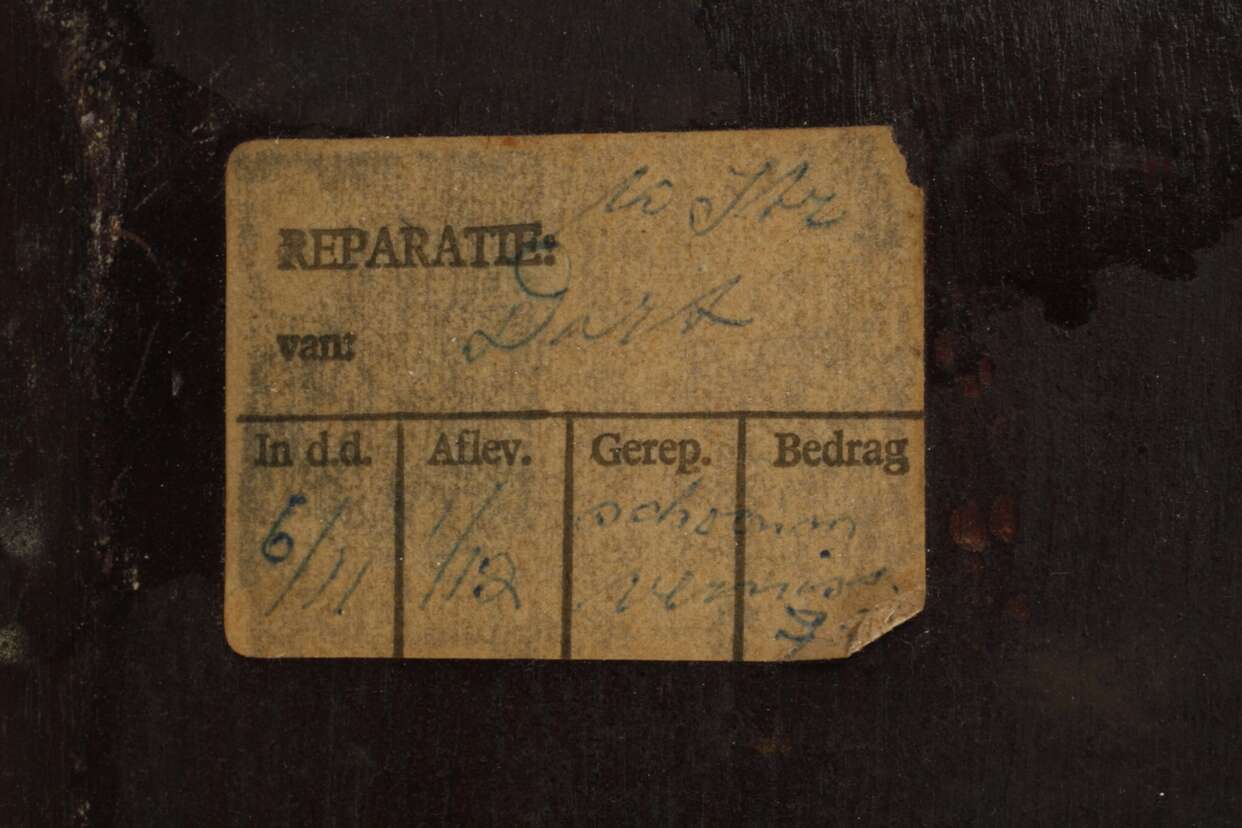 REPARATIE:
van: Dart
In d.d. Aflev. Gerep. Bedrag
6/11 1/12 schoonm
vernis